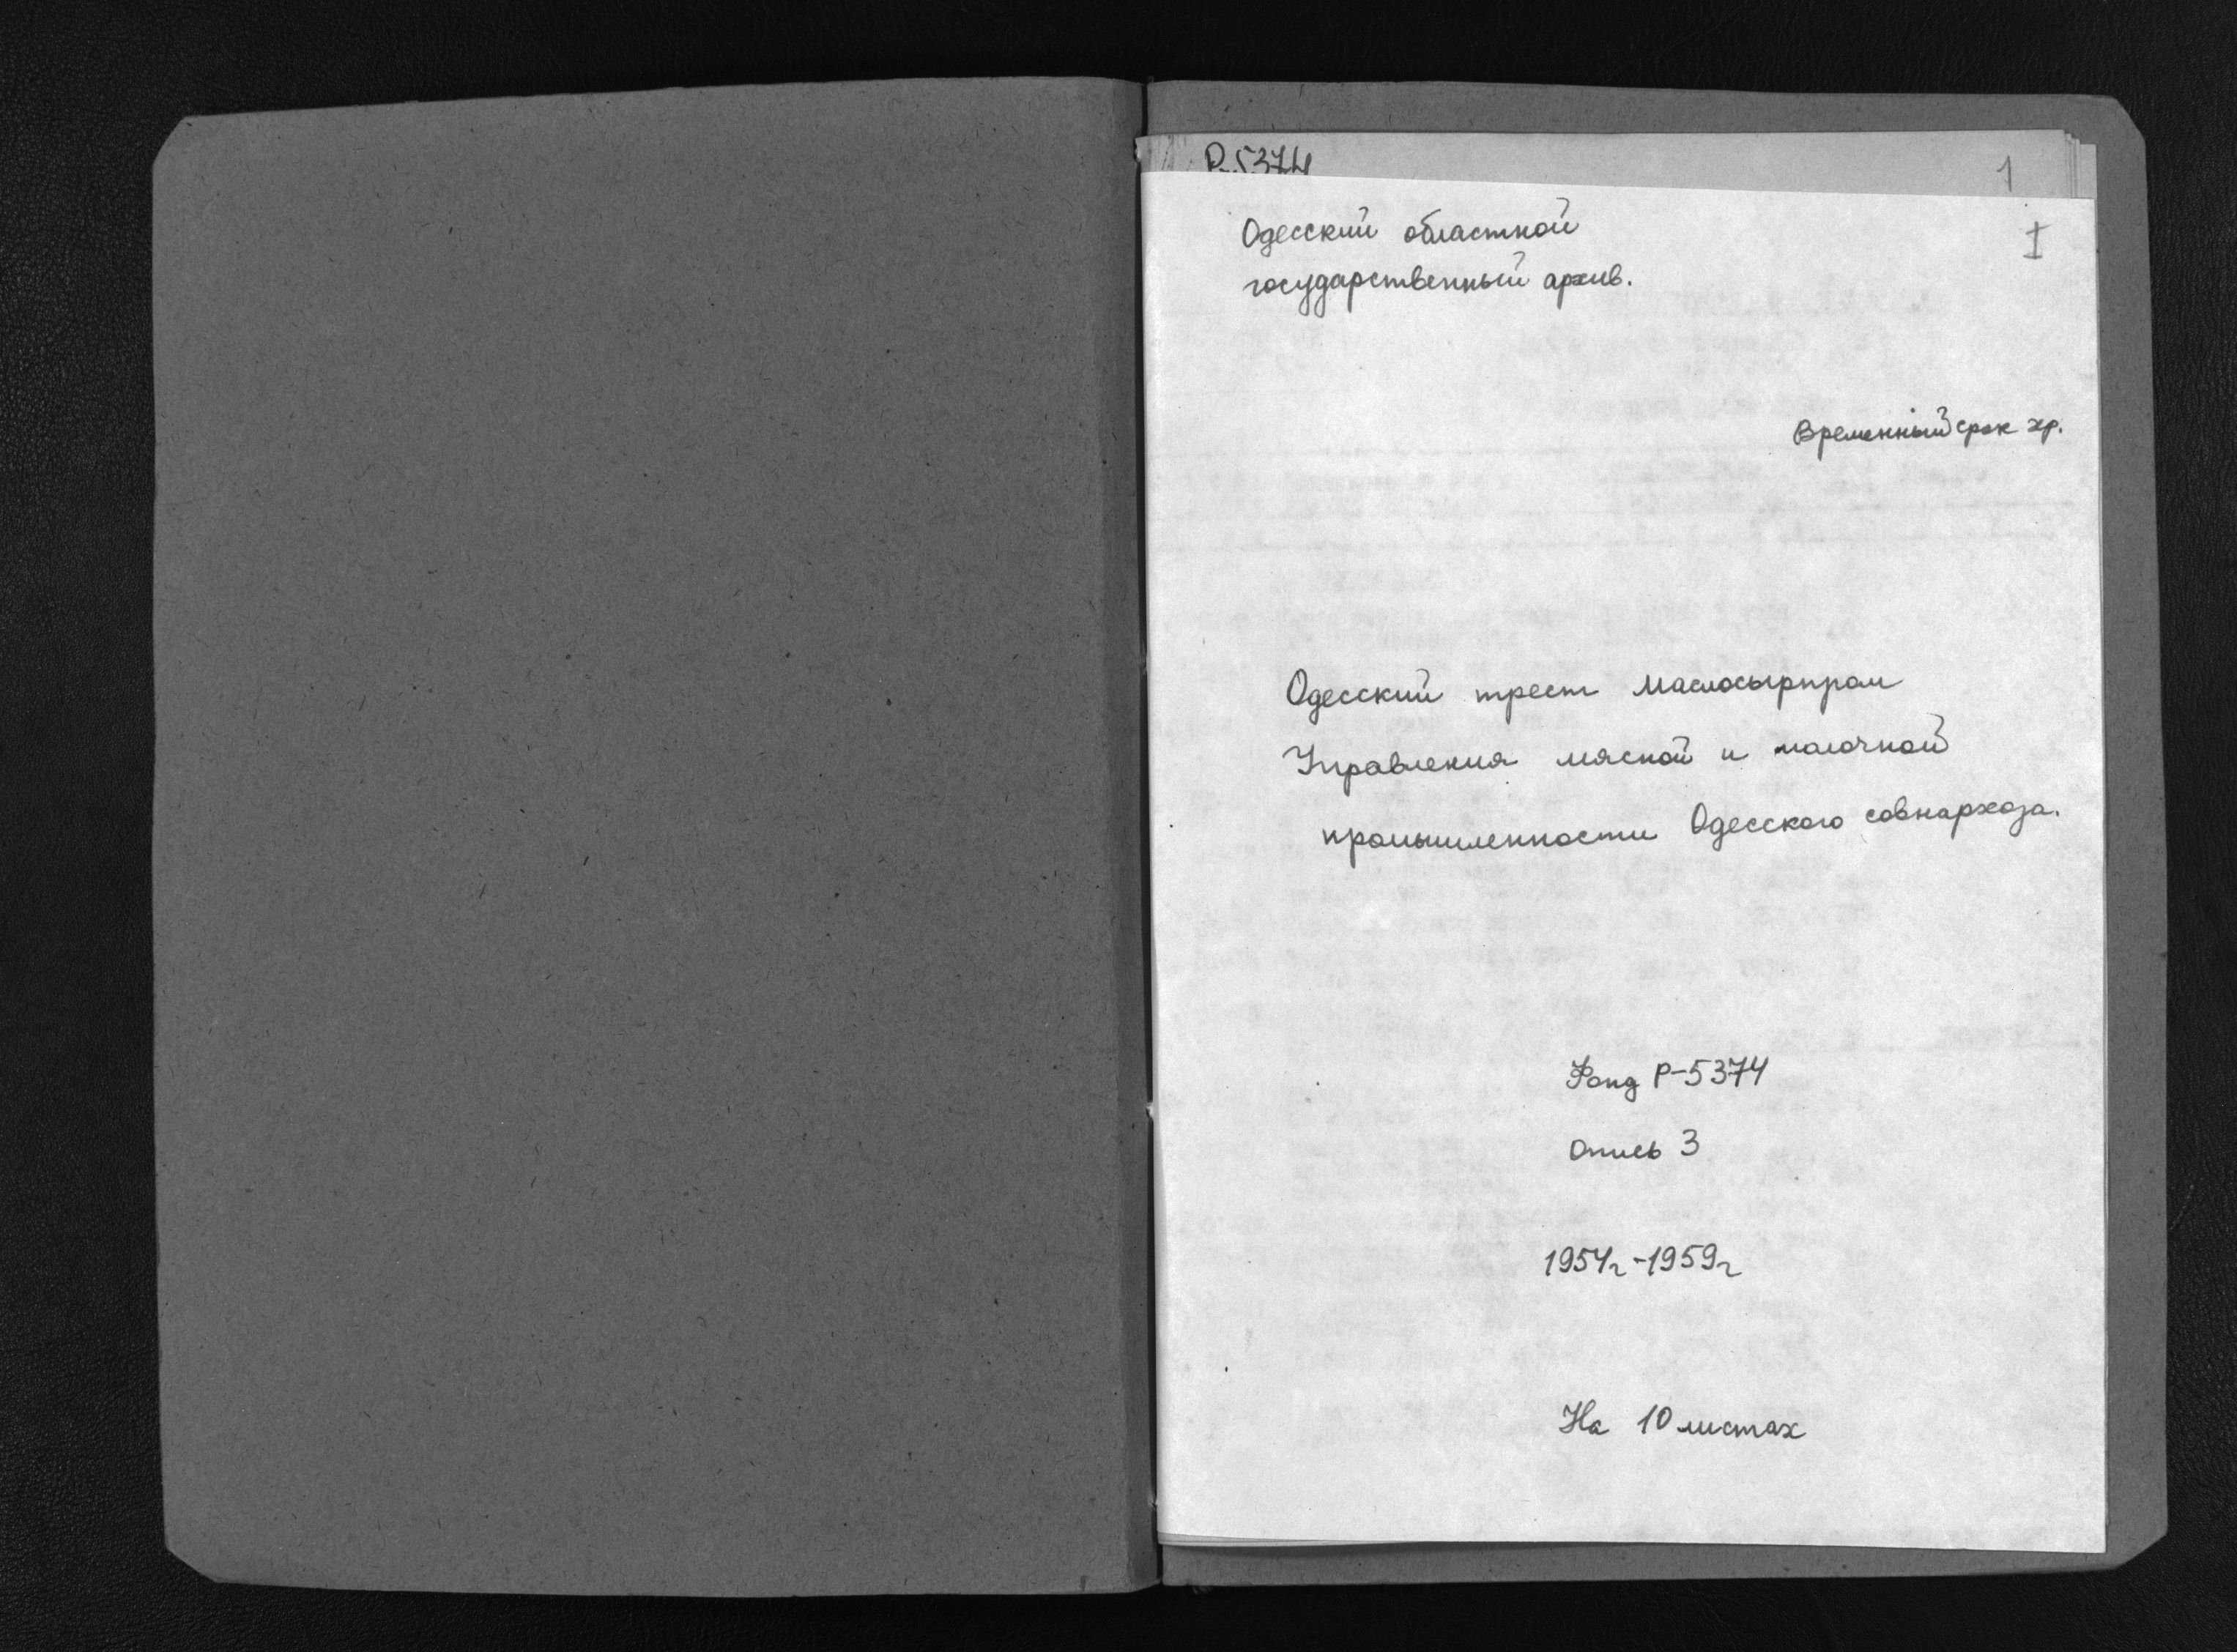 Р-5374
1
Одесский областной
I
государственный архив.
Временный срок хр.
Одесский трест Маслосырпром
Управления мясной и молочной
промышленности Одесского совнархоза.
Фонд Р-5374
Опись 3
1954г-1959г
На 10 листах